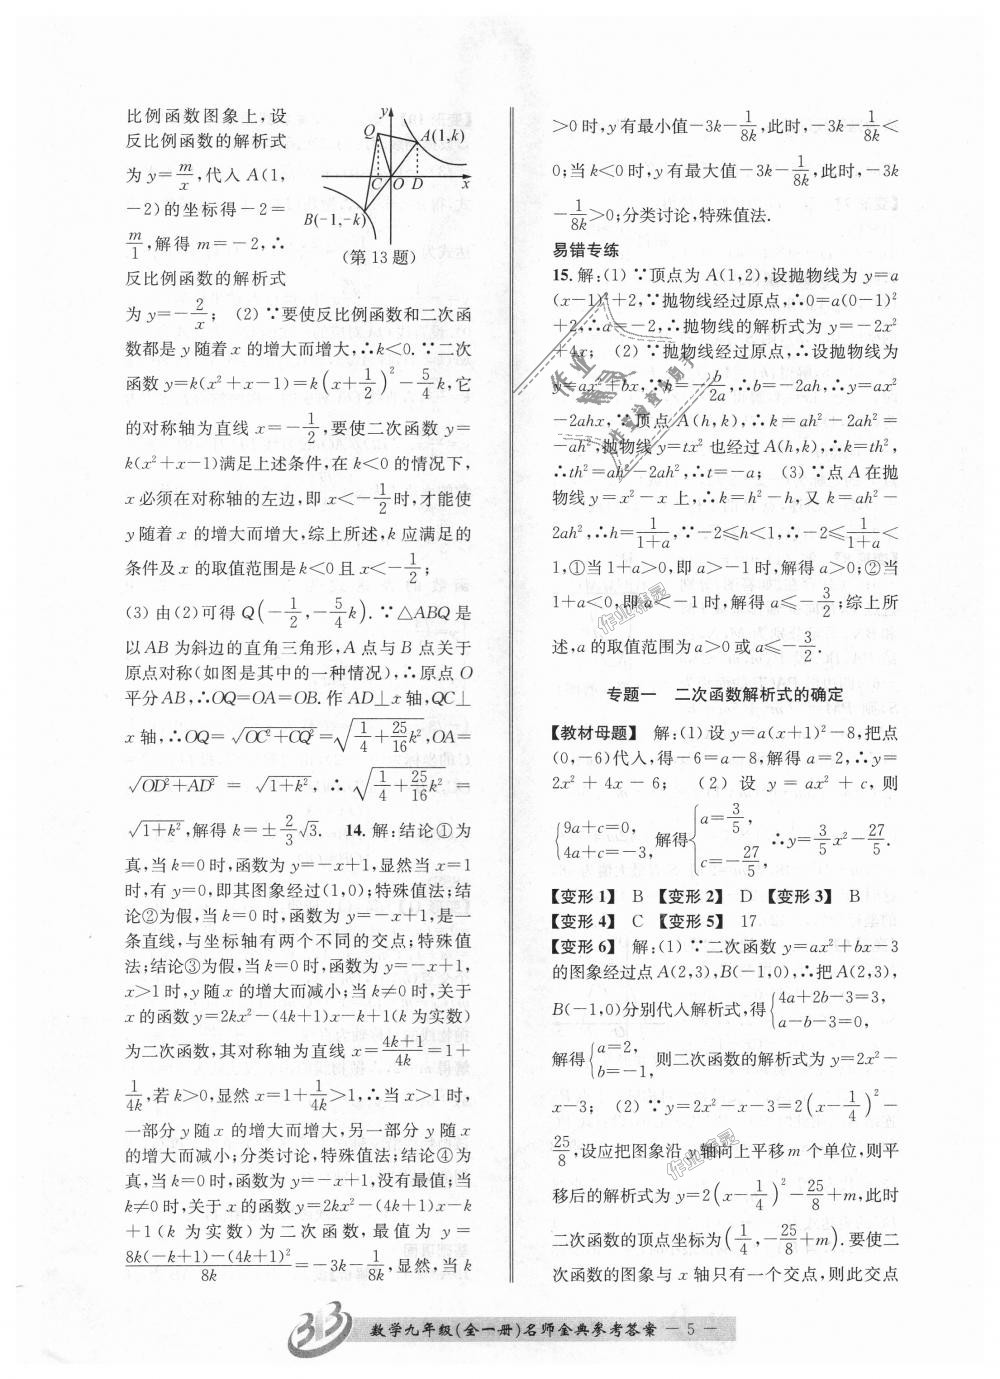 比例函数图象上,设
反比例函数的解析式
为 y=m/x,代入 A(1,
-2)的坐标得-2=
m/1,解得 m=-2,∴
反比例函数的解析式
y
Q
A(1,k)
C O D x
B(-1,-k)
(第13题)
为 y=-2/x; (2)∵要使反比例函数和二次函
数都是 y 随着 x 的增大而增大,∴k<0.∵二次
函数 y=k(x²+x-1)=k(x+1/2)²-5/4k,它
的对称轴为直线 x=-1/2,要使二次函数 y=
k(x²+x-1)满足上述条件,在 k<0 的情况下,
x 必须在对称轴的左边,即 x<-1/2时,才能使
y 随着 x 的增大而增大,综上所述,k 应满足的
条件及 x 的取值范围是 k<0 且 x<-1/2;
(3)由(2)可得 Q(-1/2,-5/4k).∵△ABQ 是
以 AB 为斜边的直角三角形,A 点与 B 点关于
原点对称(如图是其中的一种情况),∴原点 O
平分 AB,∴OQ=OA=OB.作 AD⊥x 轴,QC⊥
x 轴,∴OQ=√(OC²+CQ²)=√(1/4+25/16k²),OA=
√(OD²+AD²) = √(1+k²), ∴ √(1/4+25/16k²) =
√(1+k²),解得 k=±2/3√3. 14.解:结论①为
真,当 k=0 时,函数为 y=-x+1,显然当 x=1
时,有 y=0,即其图象经过(1,0);特殊值法;结
论②为假,当 k=0 时,函数为 y=-x+1,是一
条直线,与坐标轴有两个不同的交点;特殊值
法;结论③为假,当 k=0 时,函数为 y=-x+1,
x>1 时,y 随 x 的增大而减小;当 k≠0 时,关于
x 的函数 y=2kx²-(4k+1)x-k+1(k 为实数)
为二次函数,其对称轴为直线 x=(4k+1)/4k=1+
1/4k,若 k>0,显然 x=1+1/4k>1,∴当 x>1 时,
一部分 y 随 x 的增大而增大,另一部分 y 随 x
的增大而减小;分类讨论,特殊值法;结论④为
真,当 k=0 时,函数为 y=-x+1,没有最值;当
k≠0 时,关于 x 的函数 y=2kx²-(4k+1)x-k
+1(k 为实数)为二次函数,最值为 y=
(8k(-k+1)-(4k+1)²)/8k=-3k-1/8k,显然,当 k
>0 时,y 有最小值-3k-1/8k,此时,-3k-1/8k<
0;当 k<0 时,y 有最大值-3k-1/8k,此时,-3k
-1/8k>0;分类讨论,特殊值法.
易错专练
15.解:(1)∵顶点为 A(1,2),设抛物线为 y=a
(x-1)²+2,∵抛物线经过原点,∴0=a(0-1)²
+2,∴a=-2,∴抛物线的解析式为 y=-2x²
+4x; (2)∵抛物线经过原点,∴设抛物线为
y=ax²+bx,∵h=-b/2a,∴b=-2ah,∴y=ax²
-2ahx,∵顶点 A(h,k),∴k=ah²-2ah²=
-ah²,抛物线 y=tx² 也经过 A(h,k),∴k=th²,
∴th²=ah²-2ah²,∴t=-a; (3)∵点 A 在抛
物线 y=x²-x 上,∴k=h²-h,又 k=ah²-
2ah²,∴h=1/(1+a),∵-2≤h<1,∴-2≤1/(1+a)<
1,①当 1+a>0,即 a>-1 时,解得 a>0;②当
1+a<0,即 a<-1 时,解得 a≤-3/2;综上所
述,a 的取值范围为 a>0 或 a≤-3/2.
专题一 二次函数解析式的确定
【教材母题】 解:(1)设 y=a(x+1)²-8,把点
(0,-6)代入,得-6=a-8,解得 a=2,∴y=
2x²+4x-6; (2) 设 y=ax²+c,则
{9a+c=0, 4a+c=-3, 解得{a=3/5, c=-27/5, ∴y=3/5x²-27/5.
【变形1】 B 【变形2】 D 【变形3】 B
【变形4】 C 【变形5】 17.
【变形6】 解:(1)∵二次函数 y=ax²+bx-3
的图象经过点 A(2,3),B(-1,0),∴把 A(2,3),
B(-1,0)分别代入解析式,得{4a+2b-3=3, a-b-3=0,
解得{a=2, b=-1, 则二次函数的解析式为 y=2x²-
x-3; (2)∵y=2x²-x-3=2(x-1/4)²-
25/8,设应把图象沿 y 轴向上平移 m 个单位,则平
移后的解析式为 y=2(x-1/4)²-25/8+m,此时
二次函数的顶点坐标为(1/4,-25/8+m).要使二
次函数的图象与 x 轴只有一个交点,则此交点
作业精灵
作业检查小助手
作业精灵
作业精灵
数学九年级(全一册)名师金典参考答案 — 5 —